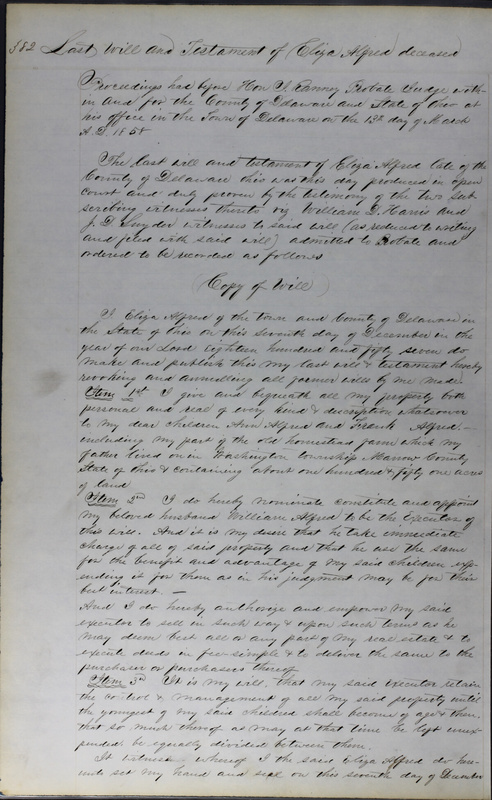 382 Last Will and Testament of Eliza Alfred deceased
Proceedings had before Hon T. Probate Judge with-
in and for the County of Delaware and State of Ohio at
his office in the Town of Delaware on the 13th day of March
A.D. 1858
The last will and testament of Eliza Alfred late of the
County of Delaware this was this day produced in open
court and duly proven by the testimony of the two sub-
scribing witnesses thereto viz William D. Harris and
J. D. Snyder witnesses to said will (as reduced to writing
and filed with said will) admitted to Probate and
ordered to be recorded as follows
(Copy of Will)
I Eliza Alfred of the town and County of Delaware in
the State of Ohio on this seventh day of December in the
year of our Lord Eighteen hundred and fifty seven do
make and publish this my last will & testament hereby
revoking and annulling all former wills by me made
Item 1st I give and bequeath all my property both
personal and real of every kind & description whatsoever
to my dear children Ann Alfred and Frank Alfred —
including my part of the old homestead farm which my
father lived on in Washington township Marrow County
State of Ohio & containing about one hundred & fifty one acres
of land
Item 2nd I do hereby nominate constitute and appoint
my beloved husband William Alfred to be the Executor of
this will. And it is my desire that he take immediate
charge of all of said property and that he use the same
for the benefit and advantage of my said children exp-
ending it for them as in his judgment may be for their
best interest. —
And I do hereby authorize and empower my said
executor to sell in such way & upon such terms as he
may deem best all or any part of my real estate & to
execute deed in fee simple & to deliver the same to the
purchaser or purchasers thereof
Item 3rd It is my will, that my said executor retain
the control & management of all my said property until
the youngest of my said children shall become of age & then
that so much thereof as may at that time be left unex-
pended be equally divided between them.
In witness whereof I the said Eliza Alfred do here-
unto set my hand and seal on this seventh day of December